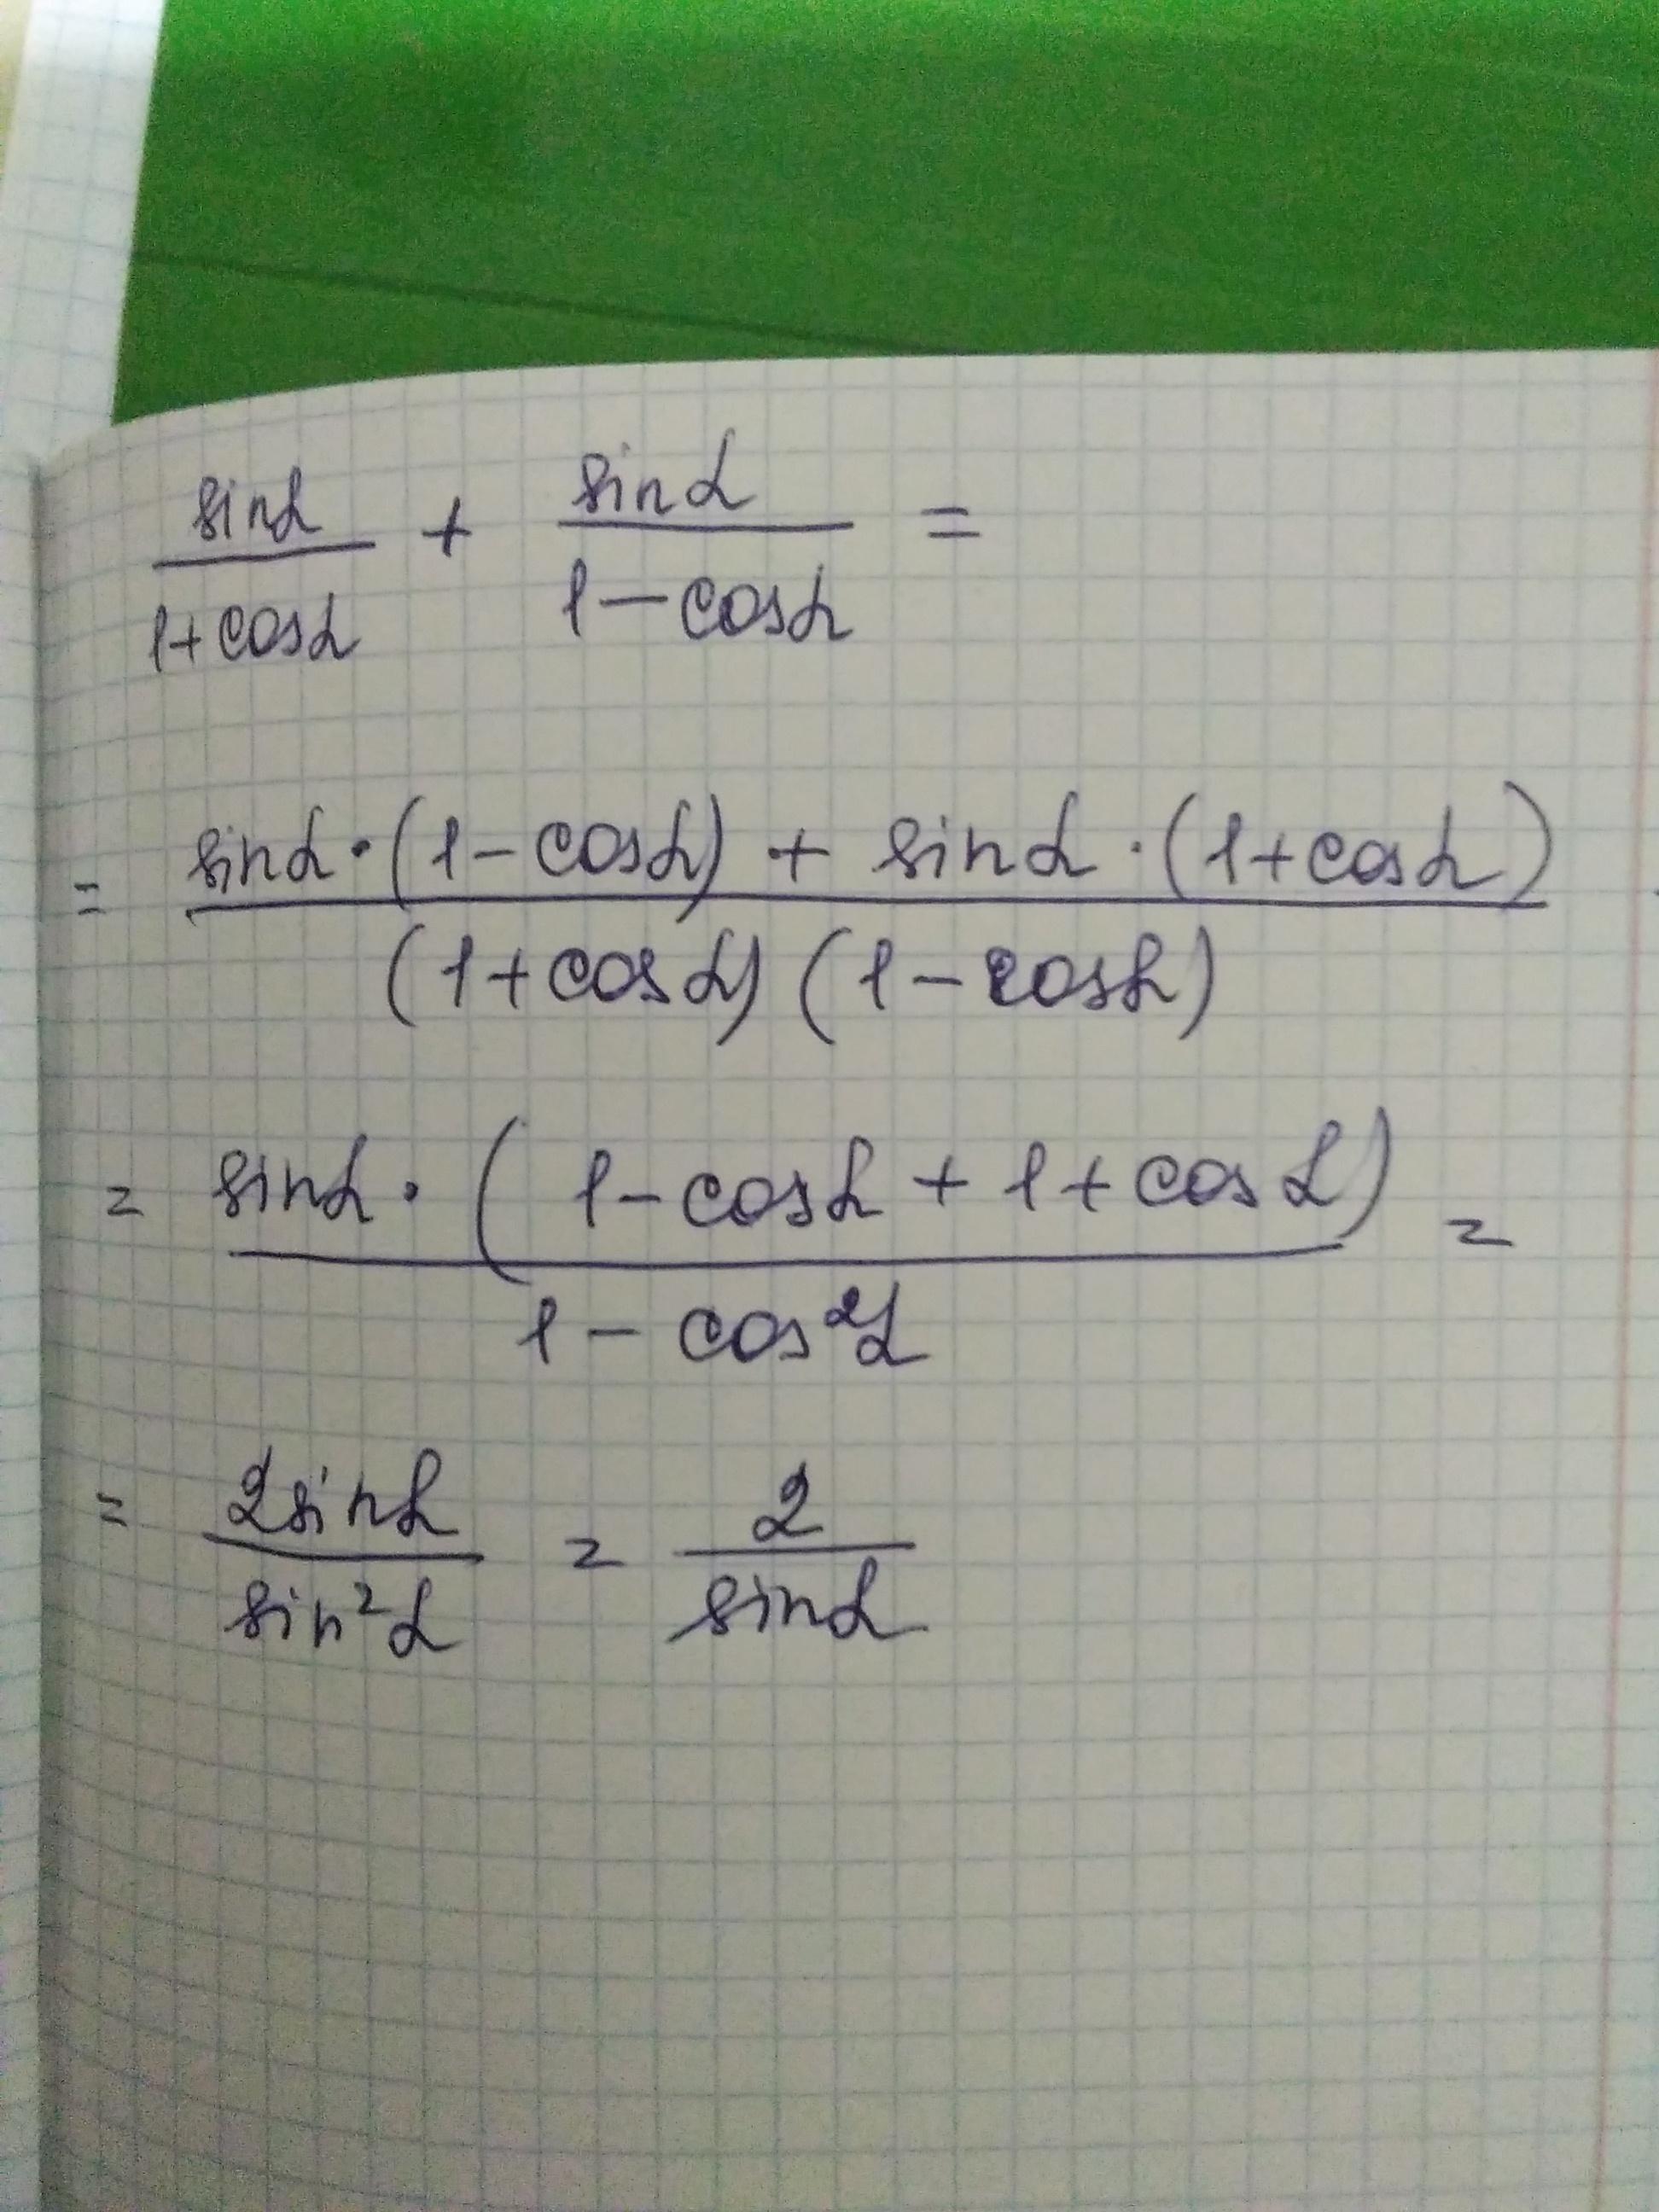 sinα/(1+cosα) + sinα/(1-cosα) =
= (sinα·(1-cosα) + sinα·(1+cosα))/((1+cosα)(1-cosα))
= (sinα·(1-cosα+1+cosα))/(1-cos²α) =
= 2sinα/sin²α = 2/sinα